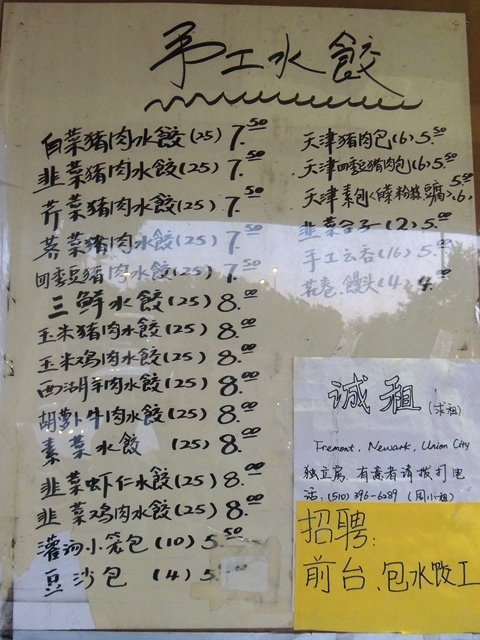 手工水餃
白菜猪肉水餃(25) 7.50
韭菜猪肉水餃(25) 7.50
芹菜猪肉水餃(25) 7.50
荠菜猪肉水餃(25) 7.50
四季豆猪肉水餃(25) 7.50
三鲜水餃(25) 8.00
玉米猪肉水餃(25) 8.00
玉米鸡肉水餃(25) 8.00
西湖羊肉水餃(25) 8.00
胡萝卜牛肉水餃(25) 8.00
素菜水餃 (25) 8.00
韭菜虾仁水餃(25) 8.00
韭菜鸡肉水餃(25) 8.00
灌汤小笼包 (10) 5.50
豆沙包 (4) 5.
天津猪肉包(6) 5.50
天津四季豆猪肉包(6) 5.50
天津素包(白菜粉丝豆腐)(6) 5.50
韭菜合子(2) 5.00
手工云吞(16) 5.00
花卷.馒头(4) 4.00
诚租(求租)
Fremont, Newark, Union City
独立房,有意者请拨打电
话:(510)396-6289 (周小姐)
招聘:
前台、包水饺工